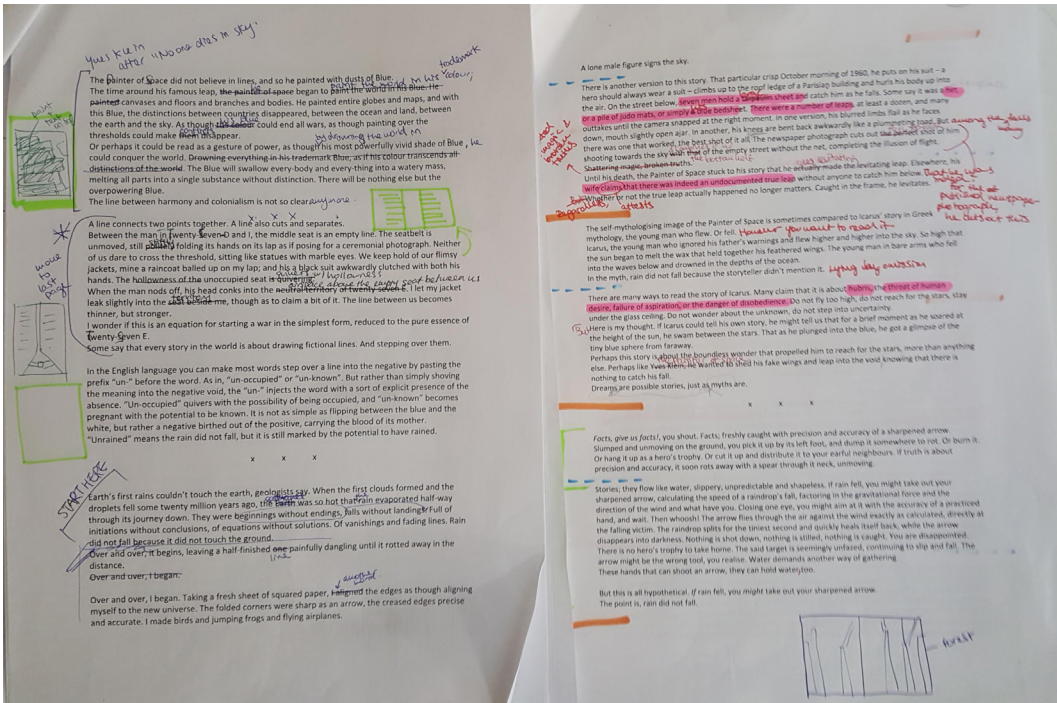 Yves Klein
after "No one dies in sky".
The Painter of Space did not believe in lines, and so he painted with dusts of Blue.
trademark
The time around his famous leap, the painter of space began to paint the world in his Blue. He
paint the world in his colour,
painted canvases and floors and branches and bodies. He painted entire globes and maps, and with
this Blue, the distinctions between countries disappeared, between the ocean and land, between
the earth and the sky. As though this colour could end all wars, as though painting over the
thresholds could make them disappear.
by drowning the world in
Or perhaps it could be read as a gesture of power, as though his most powerfully vivid shade of Blue, he
could conquer the world. Drowning everything in his trademark Blue, as if his colour transcends all
distinctions of the world. The Blue will swallow every-body and every-thing into a watery mass,
melting all parts into a single substance without distinction. There will be nothing else but the
overpowering Blue.
The line between harmony and colonialism is not so clear anymore.
move to last page
x x x
A line connects two points together. A line also cuts and separates.
Between the man in Twenty-SevenD and I, the middle seat is an empty line. The seatbelt is
unmoved, still politely folding its hands on its lap as if posing for a ceremonial photograph. Neither
of us dare to cross the threshold, sitting like statues with marble eyes. We keep hold of our flimsy
jackets, mine a raincoat balled up on my lap; and his a black suit awkwardly clutched with both his
hands. The hollowness of the unoccupied seat is quivering.
airspace above the empty seat between us
When the man nods off, his head conks into the neutral territory of twenty-seven E. I let my jacket
territory
leak slightly into the seat beside me, though as to claim a bit of it. The line between us becomes
thinner, but stronger.
I wonder if this is an equation for starting a war in the simplest form, reduced to the pure essence of
Twenty-Seven E.
Some say that every story in the world is about drawing fictional lines. And stepping over them.
In the English language you can make most words step over a line into the negative by pasting the
prefix "un-" before the word. As in, "un-occupied" or "un-known". But rather than simply shoving
the meaning into the negative void, the "un-" injects the word with a sort of explicit presence of the
absence. "Un-occupied" quivers with the possibility of being occupied, and "un-known" becomes
pregnant with the potential to be known. It is not as simple as flipping between the blue and the
white, but rather a negative birthed out of the positive, carrying the blood of its mother.
"Unrained" means the rain did not fall, but it is still marked by the potential to have rained.
x x x
START HERE
Earth's first rains couldn't touch the earth, geologists say. When the first clouds formed and the
droplets fell some twenty million years ago, the Earth was so hot that rain evaporated half-way
through its journey down. They were beginnings without endings, falls without landings. Full of
initiations without conclusions, of equations without solutions. Of vanishings and fading lines. Rain
did not fall because it did not touch the ground.
Over and over, it begins, leaving a half-finished one painfully dangling until it rotted away in the
line
distance.
Over and over, I began.
Over and over, I began. Taking a fresh sheet of squared paper, I aligned the edges as though aligning
myself to the new universe. The folded corners were sharp as an arrow, the creased edges precise
and accurate. I made birds and jumping frogs and flying airplanes.
A lone male figure signs the sky.
There is another version to this story. That particular crisp October morning of 1960, he puts on his suit – a
hero should always wear a suit – climbs up to the roof ledge of a Parisian building and hurls his body up into
the air. On the street below, seven men hold a tarpaulin sheet and catch him as he falls. Some say it was a net,
or a pile of judo mats, or simply a true bedsheet. There were a number of leaps, at least a dozen, and many
outtakes until the camera snapped at the right moment. In one version, his blurred limbs flail as he faces
down, mouth slightly open ajar. In another, his knees are bent back awkwardly like a plummeting toad. But among the fails
there was one that worked, the best shot of it all. The newspaper photograph cuts out the perfect shot of him
shooting towards the sky with that of the empty street without the net, completing the illusion of flight.
Shattering magic, broken truths.
Until his death, the Painter of Space stuck to his story that he actually made the levitating leap. Elsewhere, his
wife claims that there was indeed an undocumented true leap without anyone to catch him below.
Whether or not the true leap actually happened no longer matters. Caught in the frame, he levitates.
attests
The self-mythologising image of the Painter of Space is sometimes compared to Icarus' story in Greek
mythology, the young man who flew. Or fell. However you want to read it
Icarus, the young man who ignored his father's warnings and flew higher and higher into the sky. So high that
the sun began to melt the wax that held together his feathered wings. The young man in bare arms who fell
into the waves below and drowned in the depths of the ocean.
In the myth, rain did not fall because the storyteller didn't mention it. Lying by omission
There are many ways to read the story of Icarus. Many claim that it is about hubris, the threat of human
desire, failure of aspiration, or the danger of disobedience. Do not fly too high, do not reach for the stars, stay
under the glass ceiling. Do not wonder about the unknown, do not step into uncertainty.
But Here is my thought. If Icarus could tell his own story, he might tell us that for a brief moment as he soared at
the height of the sun, he swam between the stars. That as he plunged into the blue, he got a glimpse of the
tiny blue sphere from faraway.
Perhaps this story is about the boundless wonder that propelled him to reach for the stars, more than anything
else. Perhaps like Yves Klein, he wanted to shed his fake wings and leap into the void knowing that there is
nothing to catch his fall.
Dreams are possible stories, just as myths are.
x x x
Facts, give us facts!, you shout. Facts; freshly caught with precision and accuracy of a sharpened arrow.
Slumped and unmoving on the ground, you pick it up by its left foot, and dump it somewhere to rot. Or burn it.
Or hang it up as a hero's trophy. Or cut it up and distribute it to your earful neighbours. If truth is about
precision and accuracy, it soon rots away with a spear through it neck, unmoving.
Stories; they flow like water, slippery, unpredictable and shapeless. If rain fell, you might take out your
sharpened arrow, calculating the speed of a raindrop's fall, factoring in the gravitational force and the
direction of the wind and what have you. Closing one eye, you might aim at it with the accuracy of a practiced
hand, and wait. Then whoosh! The arrow flies through the air against the wind exactly as calculated, directly at
the falling victim. The raindrop splits for the tiniest second and quickly heals itself back, while the arrow
disappears into darkness. Nothing is shot down, nothing is stilled, nothing is caught. You are disappointed.
There is no hero's trophy to take home. The said target is seemingly unfazed, continuing to slip and fall. The
arrow might be the wrong tool, you realise. Water demands another way of gathering
These hands that can shoot an arrow, they can hold water,too.
But this is all hypothetical. If rain fell, you might take out your sharpened arrow.
The point is, rain did not fall.
forest